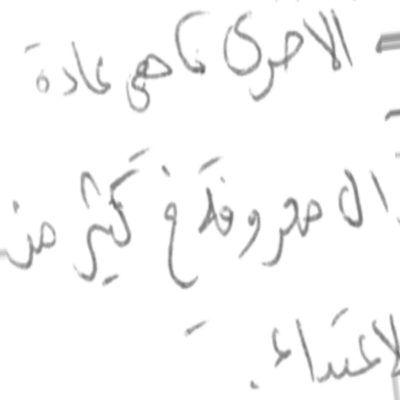 الأخرى كما هي عادة
المعروفة في كثير من
لاعتداء.